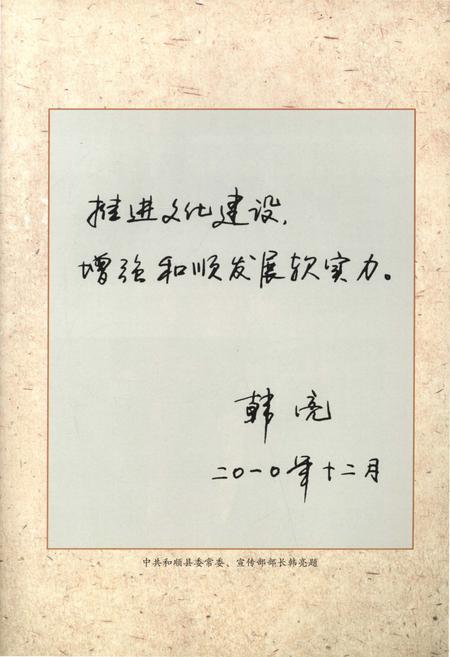 推进文化建设，
增强和顺发展软实力。
韩亮
二〇一〇年十二月
中共和顺县委常委、宣传部部长韩亮题